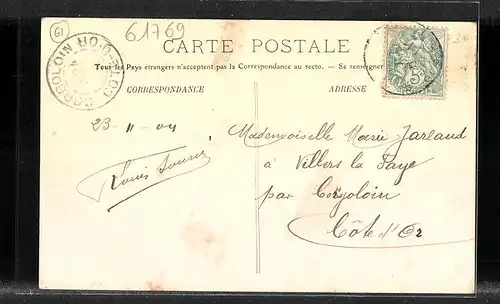 61
61769
CORGOLOIN
CÔTE-D'OR
CARTE POSTALE
Tous les Pays étrangers n'acceptent pas la Correspondance au recto. — Se renseigner
CORRESPONDANCE
ADRESSE
23-11-04
Louis
Mademoiselle Marie Jarlaud
à Villers la Faye
par Corgoloin
Côte d'Or